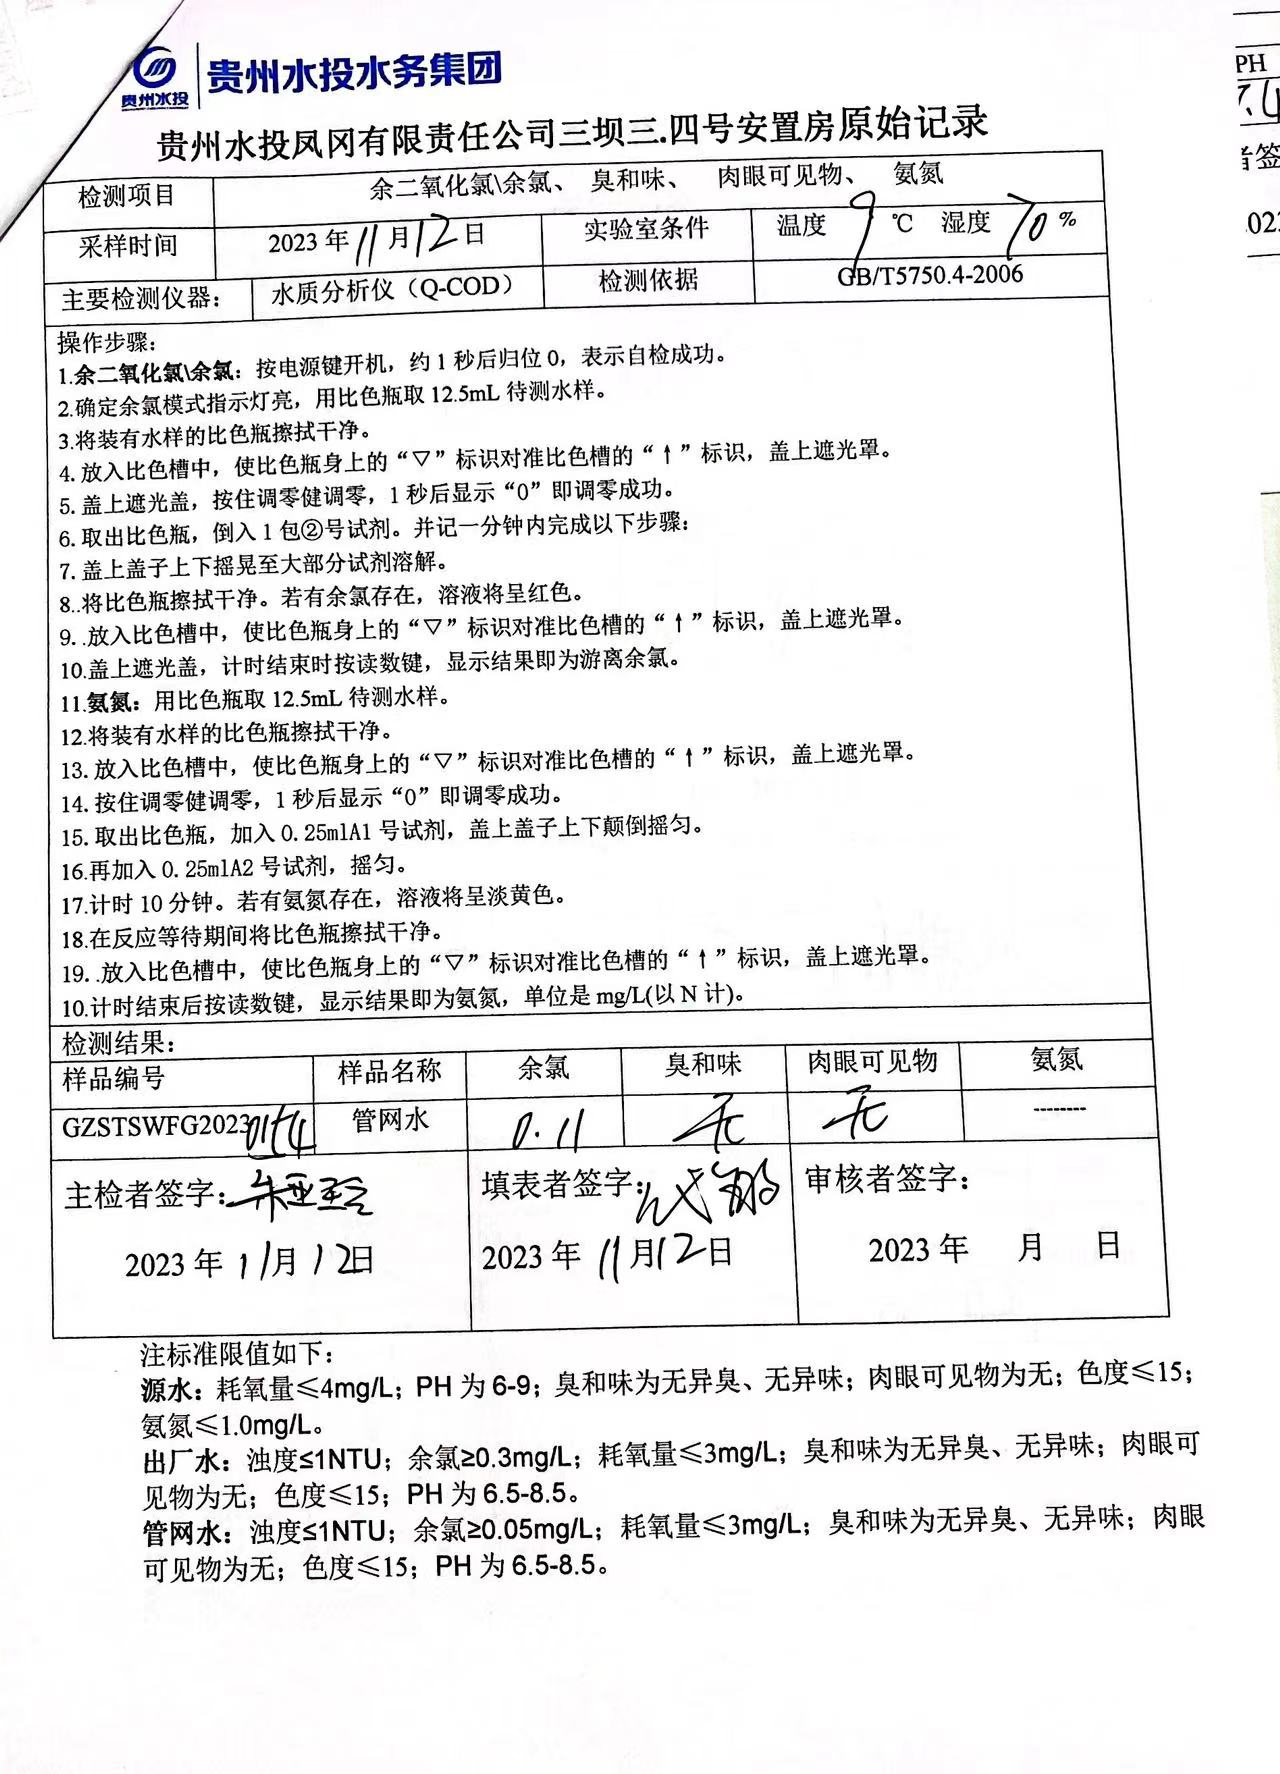 贵州水投
贵州水投水务集团
贵州水投凤冈有限责任公司三坝三.四号安置房原始记录
检测项目 余二氧化氯\余氯、 臭和味、 肉眼可见物、 氨氮
采样时间 2023年11月12日 实验室条件 温度 9 ℃ 湿度 70 %
主要检测仪器： 水质分析仪（Q-COD） 检测依据 GB/T5750.4-2006
操作步骤：
1.余二氧化氯\余氯：按电源键开机，约1秒后归位0，表示自检成功。
2.确定余氯模式指示灯亮，用比色瓶取12.5mL待测水样。
3.将装有水样的比色瓶擦拭干净。
4.放入比色槽中，使比色瓶身上的“▽”标识对准比色槽的“↑”标识，盖上遮光罩。
5.盖上遮光盖，按住调零健调零，1秒后显示“0”即调零成功。
6.取出比色瓶，倒入1包②号试剂。并记一分钟内完成以下步骤：
7.盖上盖子上下摇晃至大部分试剂溶解。
8..将比色瓶擦拭干净。若有余氯存在，溶液将呈红色。
9..放入比色槽中，使比色瓶身上的“▽”标识对准比色槽的“↑”标识，盖上遮光罩。
10.盖上遮光盖，计时结束时按读数键，显示结果即为游离余氯。
11.氨氮：用比色瓶取12.5mL待测水样。
12.将装有水样的比色瓶擦拭干净。
13.放入比色槽中，使比色瓶身上的“▽”标识对准比色槽的“↑”标识，盖上遮光罩。
14.按住调零健调零，1秒后显示“0”即调零成功。
15.取出比色瓶，加入0.25mlA1号试剂，盖上盖子上下颠倒摇匀。
16.再加入0.25mlA2号试剂，摇匀。
17.计时10分钟。若有氨氮存在，溶液将呈淡黄色。
18.在反应等待期间将比色瓶擦拭干净。
19..放入比色槽中，使比色瓶身上的“▽”标识对准比色槽的“↑”标识，盖上遮光罩。
10.计时结束后按读数键，显示结果即为氨氮，单位是mg/L(以N计)。
检测结果：
样品编号 样品名称 余氯 臭和味 肉眼可见物 氨氮
GZSTSWFG2023 管网水 0.11 无 无 --------
主检者签字： 填表者签字： 审核者签字：
2023年11月12日 2023年11月12日 2023年 月 日
注标准限值如下：
源水：耗氧量≤4mg/L；PH为6-9；臭和味为无异臭、无异味；肉眼可见物为无；色度≤15；
氨氮≤1.0mg/L。
出厂水：浊度≤1NTU；余氯≥0.3mg/L；耗氧量≤3mg/L；臭和味为无异臭、无异味；肉眼可
见物为无；色度≤15；PH为6.5-8.5。
管网水：浊度≤1NTU；余氯≥0.05mg/L；耗氧量≤3mg/L；臭和味为无异臭、无异味；肉眼
可见物为无；色度≤15；PH为6.5-8.5。
PH